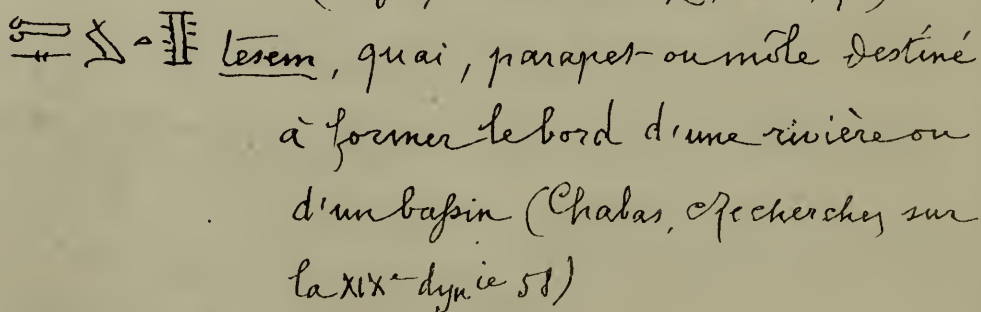 tesem, quai, parapet ou môle destiné
à former le bord d'une rivière ou
d'un bassin (Chabas, Recherches sur
la XIXe dynie 58)